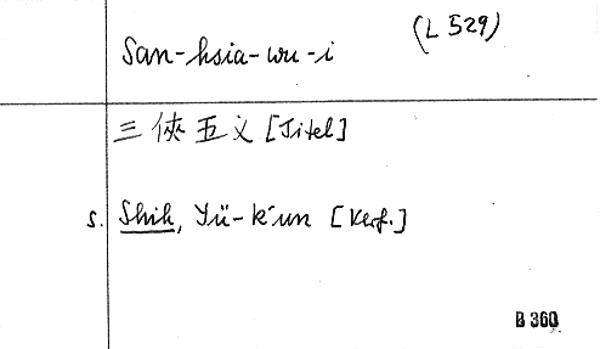 (L 529)
San-hsia-wu-i
三俠五义 [Titel]
s. Shih, Yü-k'un [Verf.]
B 360